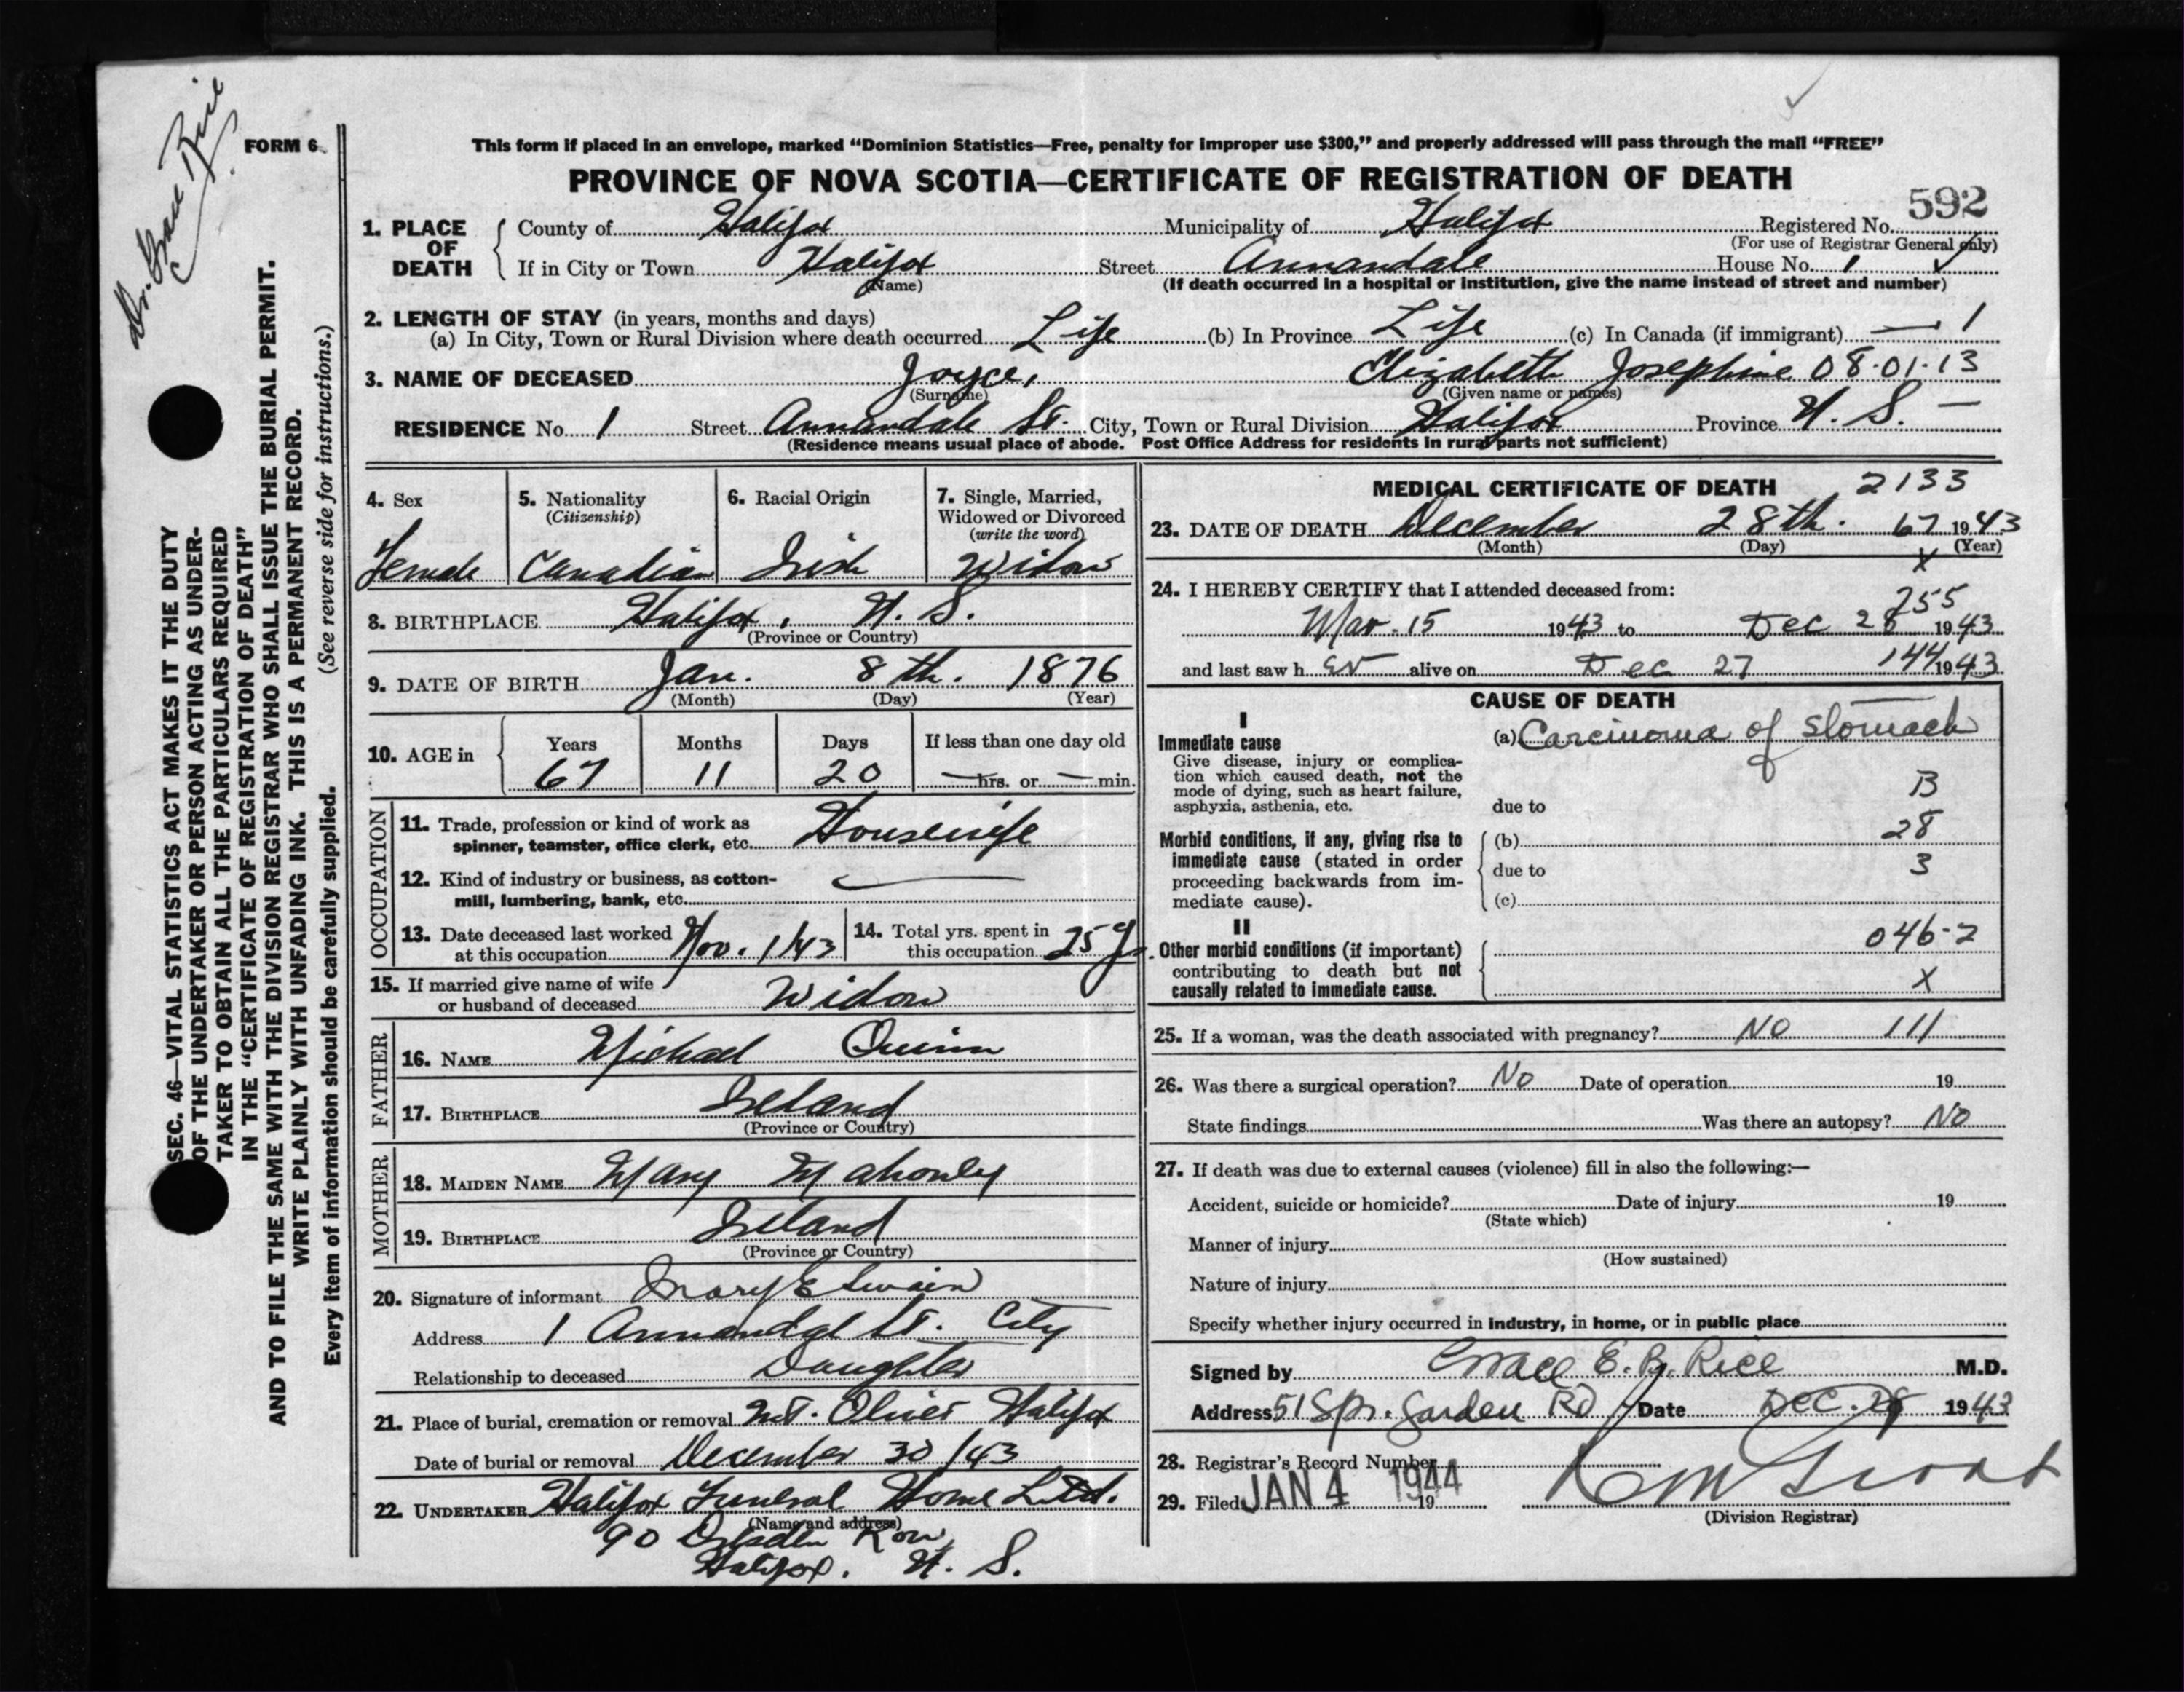 Dr. Grace Rice
FORM 6
This form if placed in an envelope, marked “Dominion Statistics—Free, penalty for improper use $300,” and properly addressed will pass through the mail “FREE”
PROVINCE OF NOVA SCOTIA—CERTIFICATE OF REGISTRATION OF DEATH
592
1. PLACE OF DEATH County of Halifax Municipality of Halifax Registered No.
(For use of Registrar General only)
If in City or Town Halifax Street Annandale House No. 1 ✓
(Name) (If death occurred in a hospital or institution, give the name instead of street and number)
2. LENGTH OF STAY (in years, months and days)
(a) In City, Town or Rural Division where death occurred Life (b) In Province Life (c) In Canada (if immigrant) — 1
3. NAME OF DECEASED Joyce, Elizabeth Josephine 08-01-13
(Surname) (Given name or names)
RESIDENCE No. 1 Street Annandale St. City, Town or Rural Division Halifax Province N. S. —
(Residence means usual place of abode. Post Office Address for residents in rural parts not sufficient)
4. Sex 5. Nationality 6. Racial Origin 7. Single, Married,
(Citizenship) Widowed or Divorced
(write the word)
Female Canadian Irish Widow
8. BIRTHPLACE Halifax, N. S.
(Province or Country)
9. DATE OF BIRTH Jan. 8th. 1876
(Month) (Day) (Year)
10. AGE in Years Months Days If less than one day old
67 11 20 — hrs. or — min.
OCCUPATION
11. Trade, profession or kind of work as
spinner, teamster, office clerk, etc. Housewife
12. Kind of industry or business, as cotton-
mill, lumbering, bank, etc. —
13. Date deceased last worked 14. Total yrs. spent in
at this occupation Nov. 1/43 this occupation 25 y
15. If married give name of wife
or husband of deceased Widow
FATHER
16. NAME Michael Quinn
17. BIRTHPLACE Ireland
(Province or Country)
MOTHER
18. MAIDEN NAME Mary Mahoney
19. BIRTHPLACE Ireland
(Province or Country)
20. Signature of informant Mary E Swain
Address 1 Annandal St. City
Relationship to deceased Daughter
21. Place of burial, cremation or removal Mt. Olivet Halifax
Date of burial or removal December 30/43
22. UNDERTAKER Halifax Funeral Home Ltd.
(Name and address)
90 Dresden Row,
Halifax. N. S.
MEDICAL CERTIFICATE OF DEATH 2133
23. DATE OF DEATH December 28th. 67 1943
(Month) (Day) X (Year)
24. I HEREBY CERTIFY that I attended deceased from:
255
Mar. 15 1943 to Dec 28 1943
and last saw h er alive on Dec 27 144 1943
CAUSE OF DEATH
I
Immediate cause (a) Carcinoma of stomach
Give disease, injury or complica-
tion which caused death, not the
mode of dying, such as heart failure, B
asphyxia, asthenia, etc. due to
Morbid conditions, if any, giving rise to (b) 28
immediate cause (stated in order
proceeding backwards from im- due to 3
mediate cause). (c)
II
Other morbid conditions (if important) 046-2
contributing to death but not
causally related to immediate cause. X
25. If a woman, was the death associated with pregnancy? No 111
26. Was there a surgical operation? No Date of operation 19
State findings Was there an autopsy? No
27. If death was due to external causes (violence) fill in also the following:—
Accident, suicide or homicide? Date of injury 19
(State which)
Manner of injury
(How sustained)
Nature of injury
Specify whether injury occurred in industry, in home, or in public place
Signed by Grace E. B. Rice M.D.
Address 51 Spr. Garden Rd Date Dec. 28 1943
28. Registrar's Record Number
29. Filed JAN 4 1944 19
(Division Registrar)
SEC. 46—VITAL STATISTICS ACT MAKES IT THE DUTY
OF THE UNDERTAKER OR PERSON ACTING AS UNDER-
TAKER TO OBTAIN ALL THE PARTICULARS REQUIRED
IN THE “CERTIFICATE OF REGISTRATION OF DEATH”
AND TO FILE THE SAME WITH THE DIVISION REGISTRAR WHO SHALL ISSUE THE BURIAL PERMIT.
WRITE PLAINLY WITH UNFADING INK. THIS IS A PERMANENT RECORD.
Every item of information should be carefully supplied. (See reverse side for instructions.)